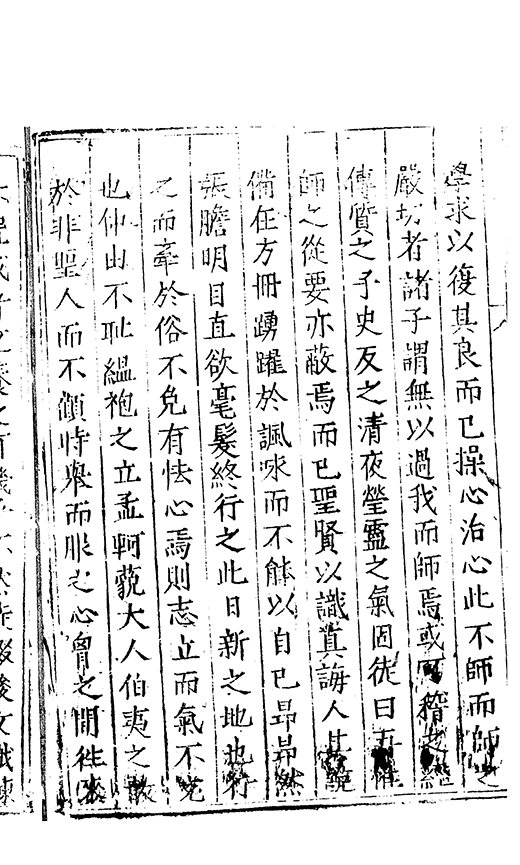 學求以復其良而已操心治心此不師而師之
嚴切者諸子謂無以過我而師焉或可稽之經
傳質之子史反之清夜瑩靈之氣固徒曰吾惟
師之從要亦蔽焉而已聖賢以識真誨人其説
備在方冊踴躍於諷咏而不能以自已昂昂然
張膽明目直欲毫髮終行之此日新之地也行
之而牽於俗不免有怯心焉則志立而氣不克
也仲由不耻緼袍之立孟軻藐大人伯夷之敢
於非聖人而不顧時舉而服之心胷之間徃來